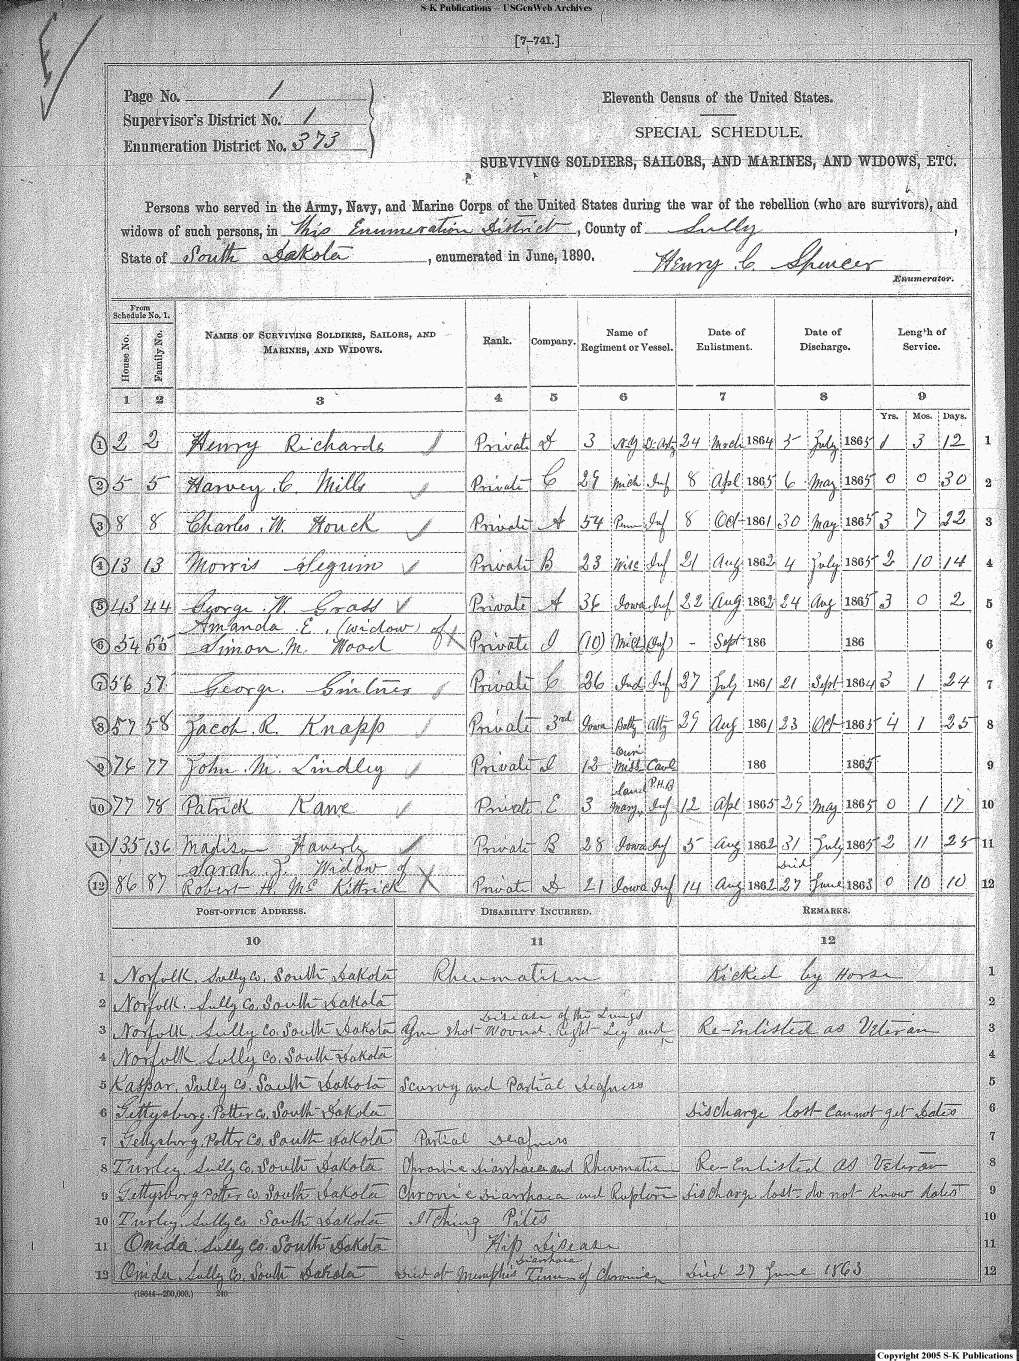 S-K Publications – USGenWeb Archives
[7–741.]
Page No. 1
Supervisor's District No. 1
Enumeration District No. 373
Eleventh Census of the United States.
SPECIAL SCHEDULE.
SURVIVING SOLDIERS, SAILORS, AND MARINES, AND WIDOWS, ETC.
Persons who served in the Army, Navy, and Marine Corps of the United States during the war of the rebellion (who are survivors), and
widows of such persons, in this Enumeration District, County of Sully,
State of South Dakota, enumerated in June, 1890. Henry C. Spencer
Enumerator.
From Schedule No. 1. House No. Family No. Names of Surviving Soldiers, Sailors, and Marines, and Widows. Rank. Company. Name of Regiment or Vessel. Date of Enlistment. Date of Discharge. Length of Service.
1 2 3 4 5 6 7 8 9
Yrs. Mos. Days.
1 2 2 Henry Richards Private D 3 N.Y. 24 March 1864 5 July 1865 1 3 12 1
2 5 5 Harvey C. Mills Private C 29 Mich Inf 8 Apl 1865 6 May 1865 0 0 30 2
3 8 8 Charles W. Houck Private A 54 Penn Inf 8 Oct 1861 30 May 1865 3 7 22 3
4 13 13 Morris Seguin Private B 23 Wisc Inf 21 Aug 1862 4 July 1865 2 10 14 4
5 43 44 George W. Grass Private A 36 Iowa Inf 22 Aug 1862 24 Aug 1865 3 0 2 5
Amanda E. (widow) of
6 54 55 Simon M. Wood Private I (10) (Mich) (Inf) - Sept 186 186 6
7 56 57 George Private C 26 Ind Inf 27 July 1861 21 Sept 1864 3 1 24 7
8 57 58 Jacob R. Knapp Private 3rd Iowa Batty Atty 29 Aug 1861 23 Oct 1865 4 1 25 8
9 76 77 John M. Lindley Private I 12 Miss Cavl 186 1865 9
10 77 78 Patrick Kane Private E 3 Mary Land P.H.B Inf 12 Apl 1865 29 May 1865 0 1 17 10
11 135 136 Madison Haverly Private B 28 Iowa Inf 5 Aug 1862 31 July 1865 2 11 25 11
Sarah J. Widow of died
12 86 87 Robert H. McKittrick Private D 21 Iowa Inf 14 Aug 1862 27 June 1863 0 10 10 12
Post-office Address. Disability Incurred. Remarks.
10 11 12
1 Norfolk. Sully Co. South Dakota Rheumatism Kicked by Horse 1
2 Norfolk. Sully Co. South Dakota 2
Disease of the Lungs
3 Norfolk. Sully Co. South Dakota Gun Shot Wound. Right Leg and Re-Enlisted as Veteran 3
4 Norfolk Sully Co. South Dakota 4
5 Kaspar. Sully Co. South Dakota Scurvy and Partial Deafness 5
6 Gettysburg. Potter Co. South Dakota Discharge lost cannot get dates 6
7 Gettysburg. Potter Co. South Dakota Partial Deafness 7
8 Turley. Sully Co. South Dakota Chronic Diarrhaea and Rheumatism Re-Enlisted as Veteran 8
9 Gettysburg Potter Co. South Dakota Chronic Diarrhaea and Rupture Discharge lost do not know dates 9
10 Turley. Sully Co South Dakota Itching Piles 10
11 Onida. Sully Co. South Dakota Hip Disease 11
Diarrhaea
12 Onida. Sully Co. South Dakota Died at Memphis Tenn of Chronic Died 27 June 1863 12
(19644—200,000.) 240
Copyright 2005 S-K Publications